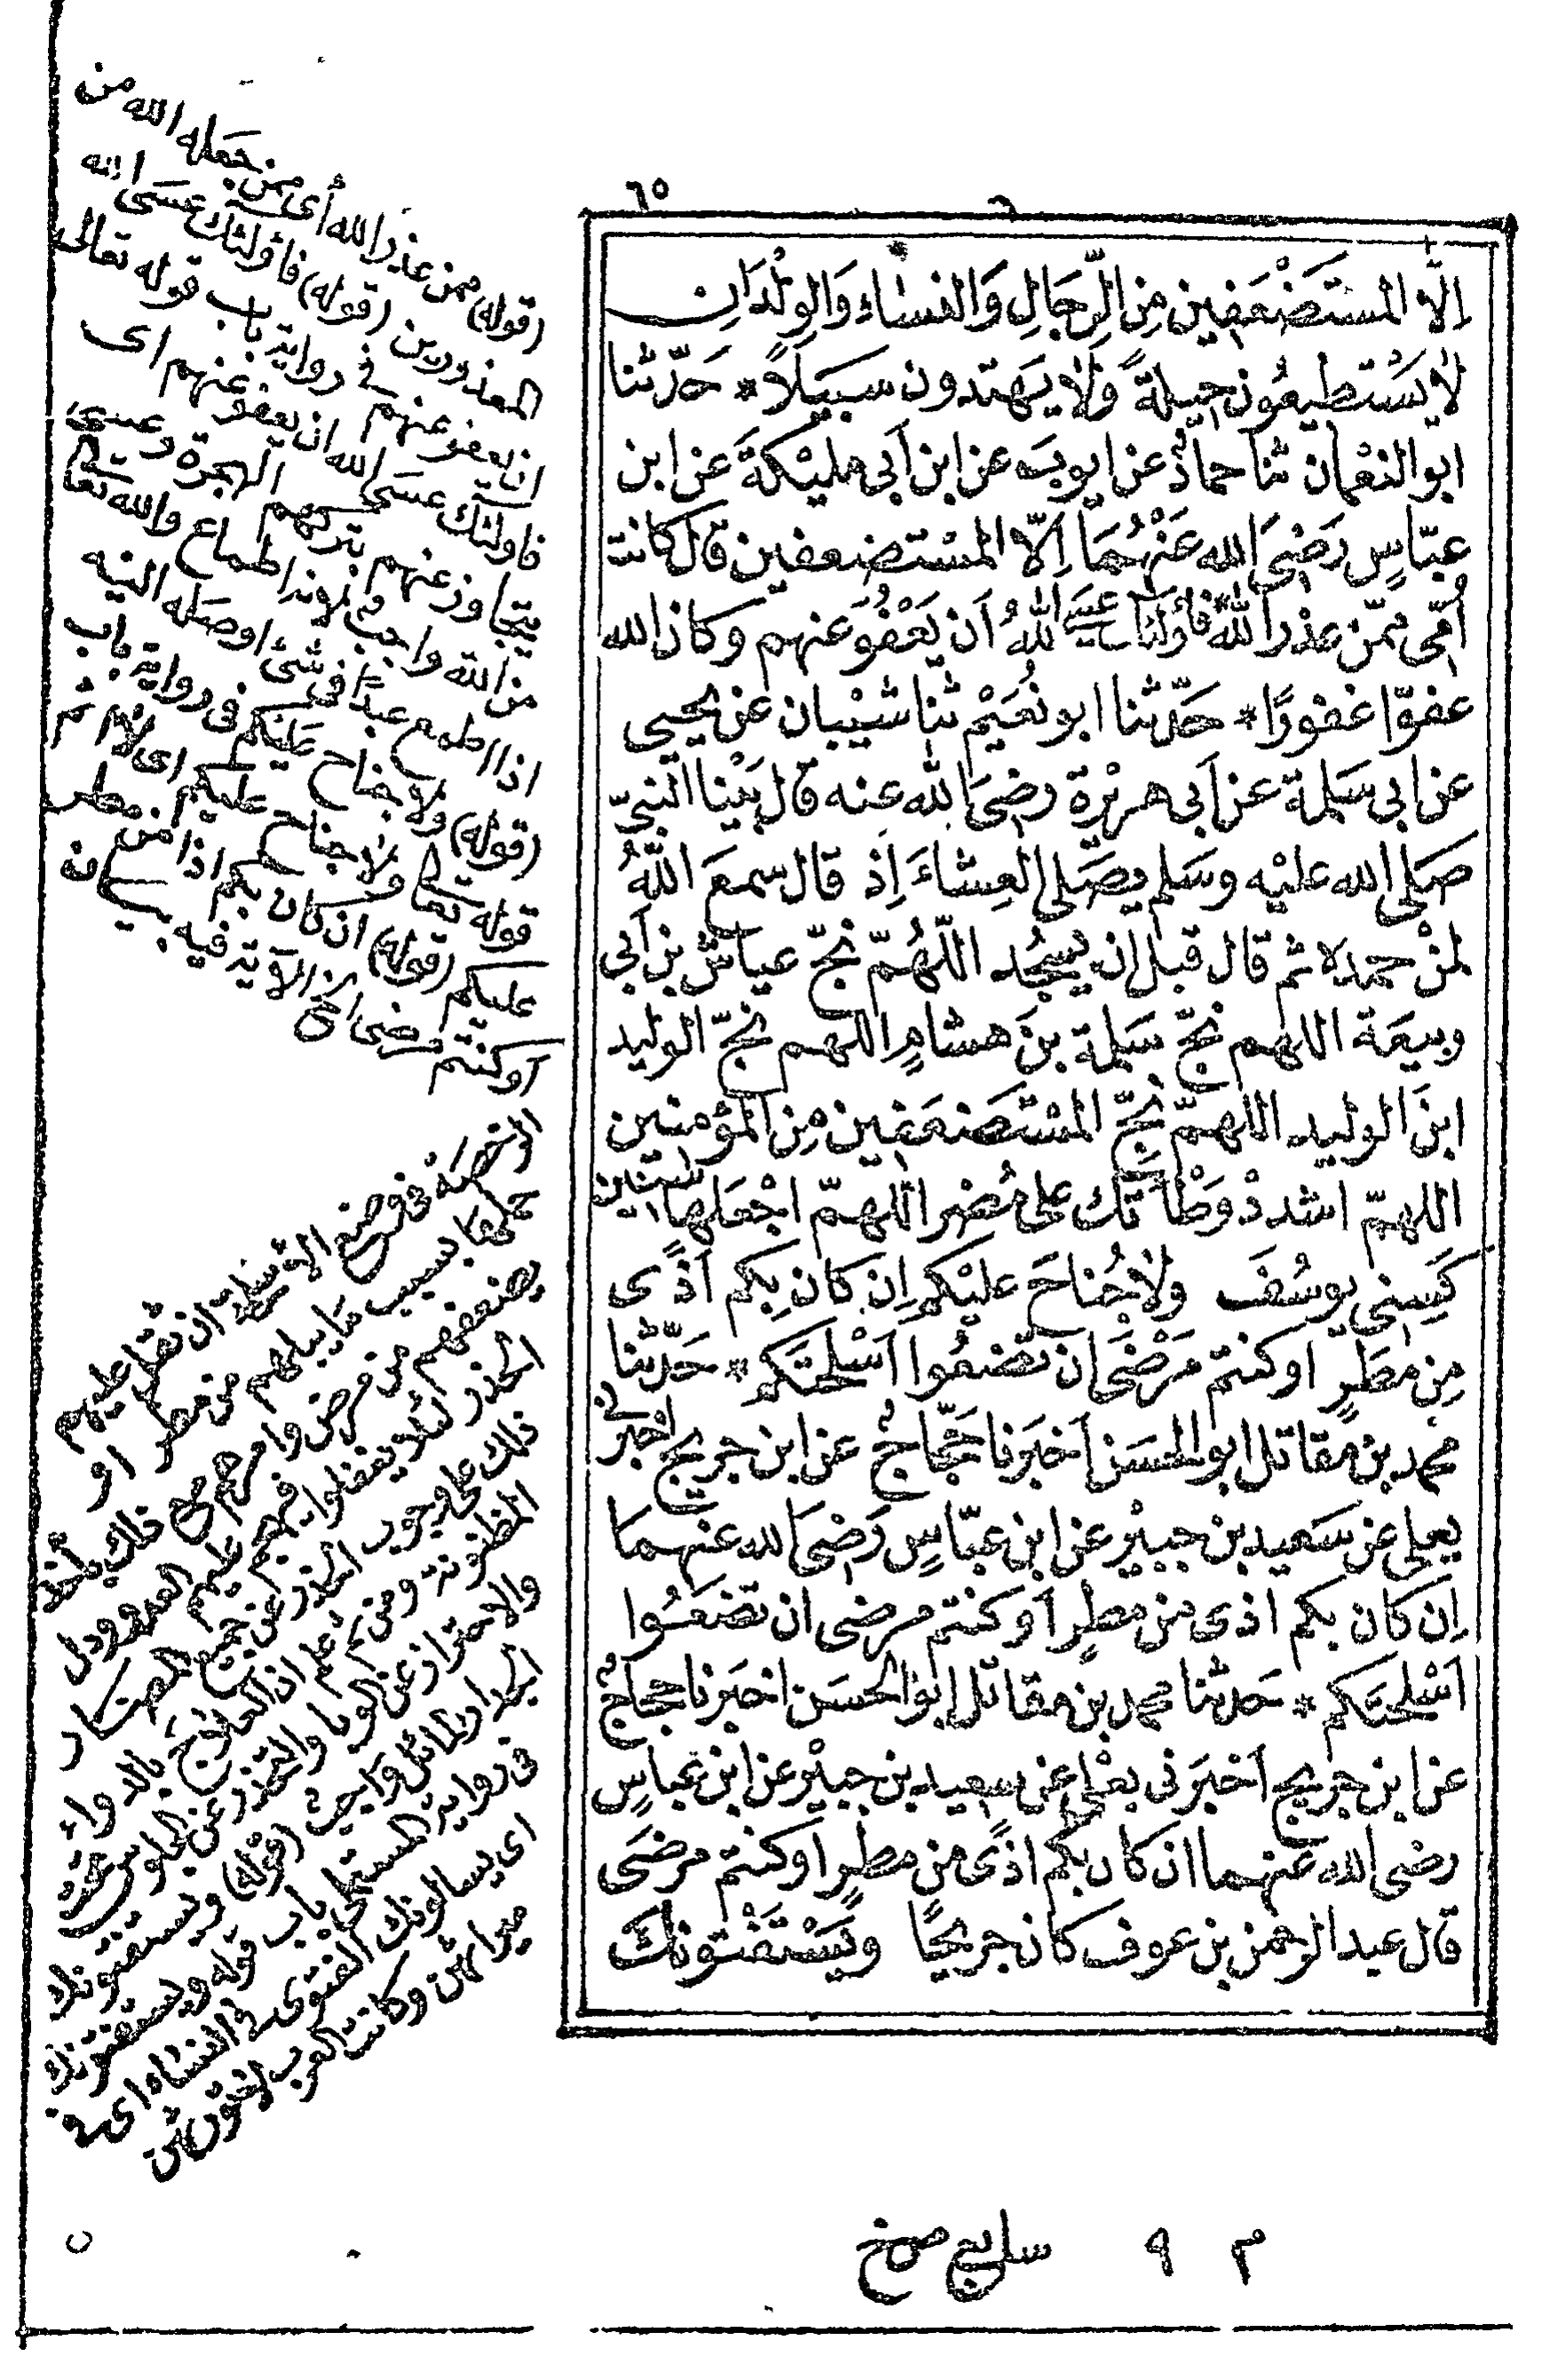 ٦٥
اِلّا المسْتَضْعَفِين مِن الرِّجَالِ وَالنسَاءِ وَالوِلْدَانِ
لا يَسْتطيعُون حِيلةً وَلا يَهتدون سبَيلاً * حَدّثنا
ابو النعْمان ثنا حمادٌ عن ايوبَ عن ابن اَبى مليْكةَ عن ابن
عبّاسٍ رَضىَ الله عَنْهُمَا اِلّا المسْتضعفين قال كانت
اُمّى ممّن عذرَ اللهُ فاُولئك عَسَى اللهُ اَن يَعْفُوَ عنهم وكان الله
عفوّا غفورًا * حَدّثنا ابو نُعَيْم ثنا شيْبان عن يحيى
عن ابى سَلمة عن اَبى هريْرة رضىَ الله عنه قال بَيْنا النبىّ
صَلى الله عليْه وسَلم يصَلى العِشاءَ اِذ قال سمعَ اللهُ
لمنْ حمده ثم قال قبل ان يسجُد اللّهُمّ نجّ عياشَ بن اَبى
ربيعَة اللهم نجّ سَلمة بنَ هشامٍ اللهم نجّ الوليد
ابنَ الوليد اللهمّ نجّ المسْتضعَفين مِن المؤمنين
اللهمّ اشددْ وَطْاَتك على مُضر اللهمّ اجْعَلها سنين
كَسِنى يوسُفَ ولا جُناحَ عليْكم اِن كان بِكم اَذًى
مِن مَطَرٍ او كنتم مَرْضَى اَن تضعُوا اَسْلحتَكم * حَدّثنا
محمد بن مقاتل ابو الحسَن اَخبَرنا حَجّاجٌ عن ابن جريج اخبرنى
يعلى عن سَعيد بن جبيْر عن ابن عبّاسٍ رَضىَ الله عنهما
اِن كان بكم اذى من مطرٍ اَو كنتم مرضى ان تضعَوا
اَسْلحتَكم * حَدثنا محمد بن مقاتل ابو الحسَن اخبَرنا حجاجٌ
عن ابن جريج اَخبَرنى يعْلى عن سعيد بن جبيْر عن ابن عباسٍ
رضى الله عنهما ان كان بكم اذًى من مطرٍ او كنتم مرضَى
قال عبد الرحمن بن عوف كان جريحًا ويَسْتَفْتونكَ
(قوله) ممن عذر الله أى ممن جعله الله من
المعذورين (قوله) فاولئك عسَى الله
ان يعفو عنهم فى رواية باب قوله تعالى
فاولئك عسَى الله ان يعفو عنهم اى
يتجاوز عنهم بتركهم الهجرة وعسى
من الله واجب لانه اطماع والله تعالى
اذا اطمع عبدًا فى شئ اوصله اليه
(قوله) ولا جناح عليكم فى رواية باب
قوله تعالى ولا جناح عليكم اى لا اثم
عليكم (قوله) ان كان بكم اذا من مطر
اوكنتم مرضى الخ الآية فيه بيان
الرخصة فى وضع الاسلحة ان ثقل عليهم
حملها بسبب ما يبلهم من مطر او
يضعفهم من مرض وامرهم مع ذلك باخذ
الحذر لئلا يغفلوا فيهجم عليهم العدو ودل
ذلك على وجوب الحذر عن جميع المضار
المظنونة ومن ثم علم ان العلاج بالدواء
والاحتراز عن الوبا والتحرز عن الجلوس تحت
الجدار المائل واجب (قوله) ويستفتونك
فى رواية المستملى باب قوله ويستفتونك
اى يسالونك الفتوى فى النساء اى فى
ميراثهن وكانت العرب لا تورثهن
م ٩ سابع ص خ